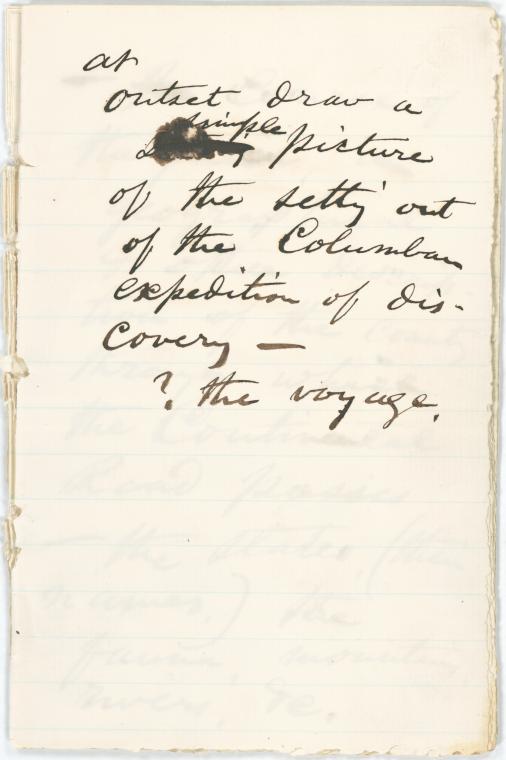 at
outset draw a
simple
picture
of the setty' out
of the Columban
expedition of dis-
covery —
? the voyage.